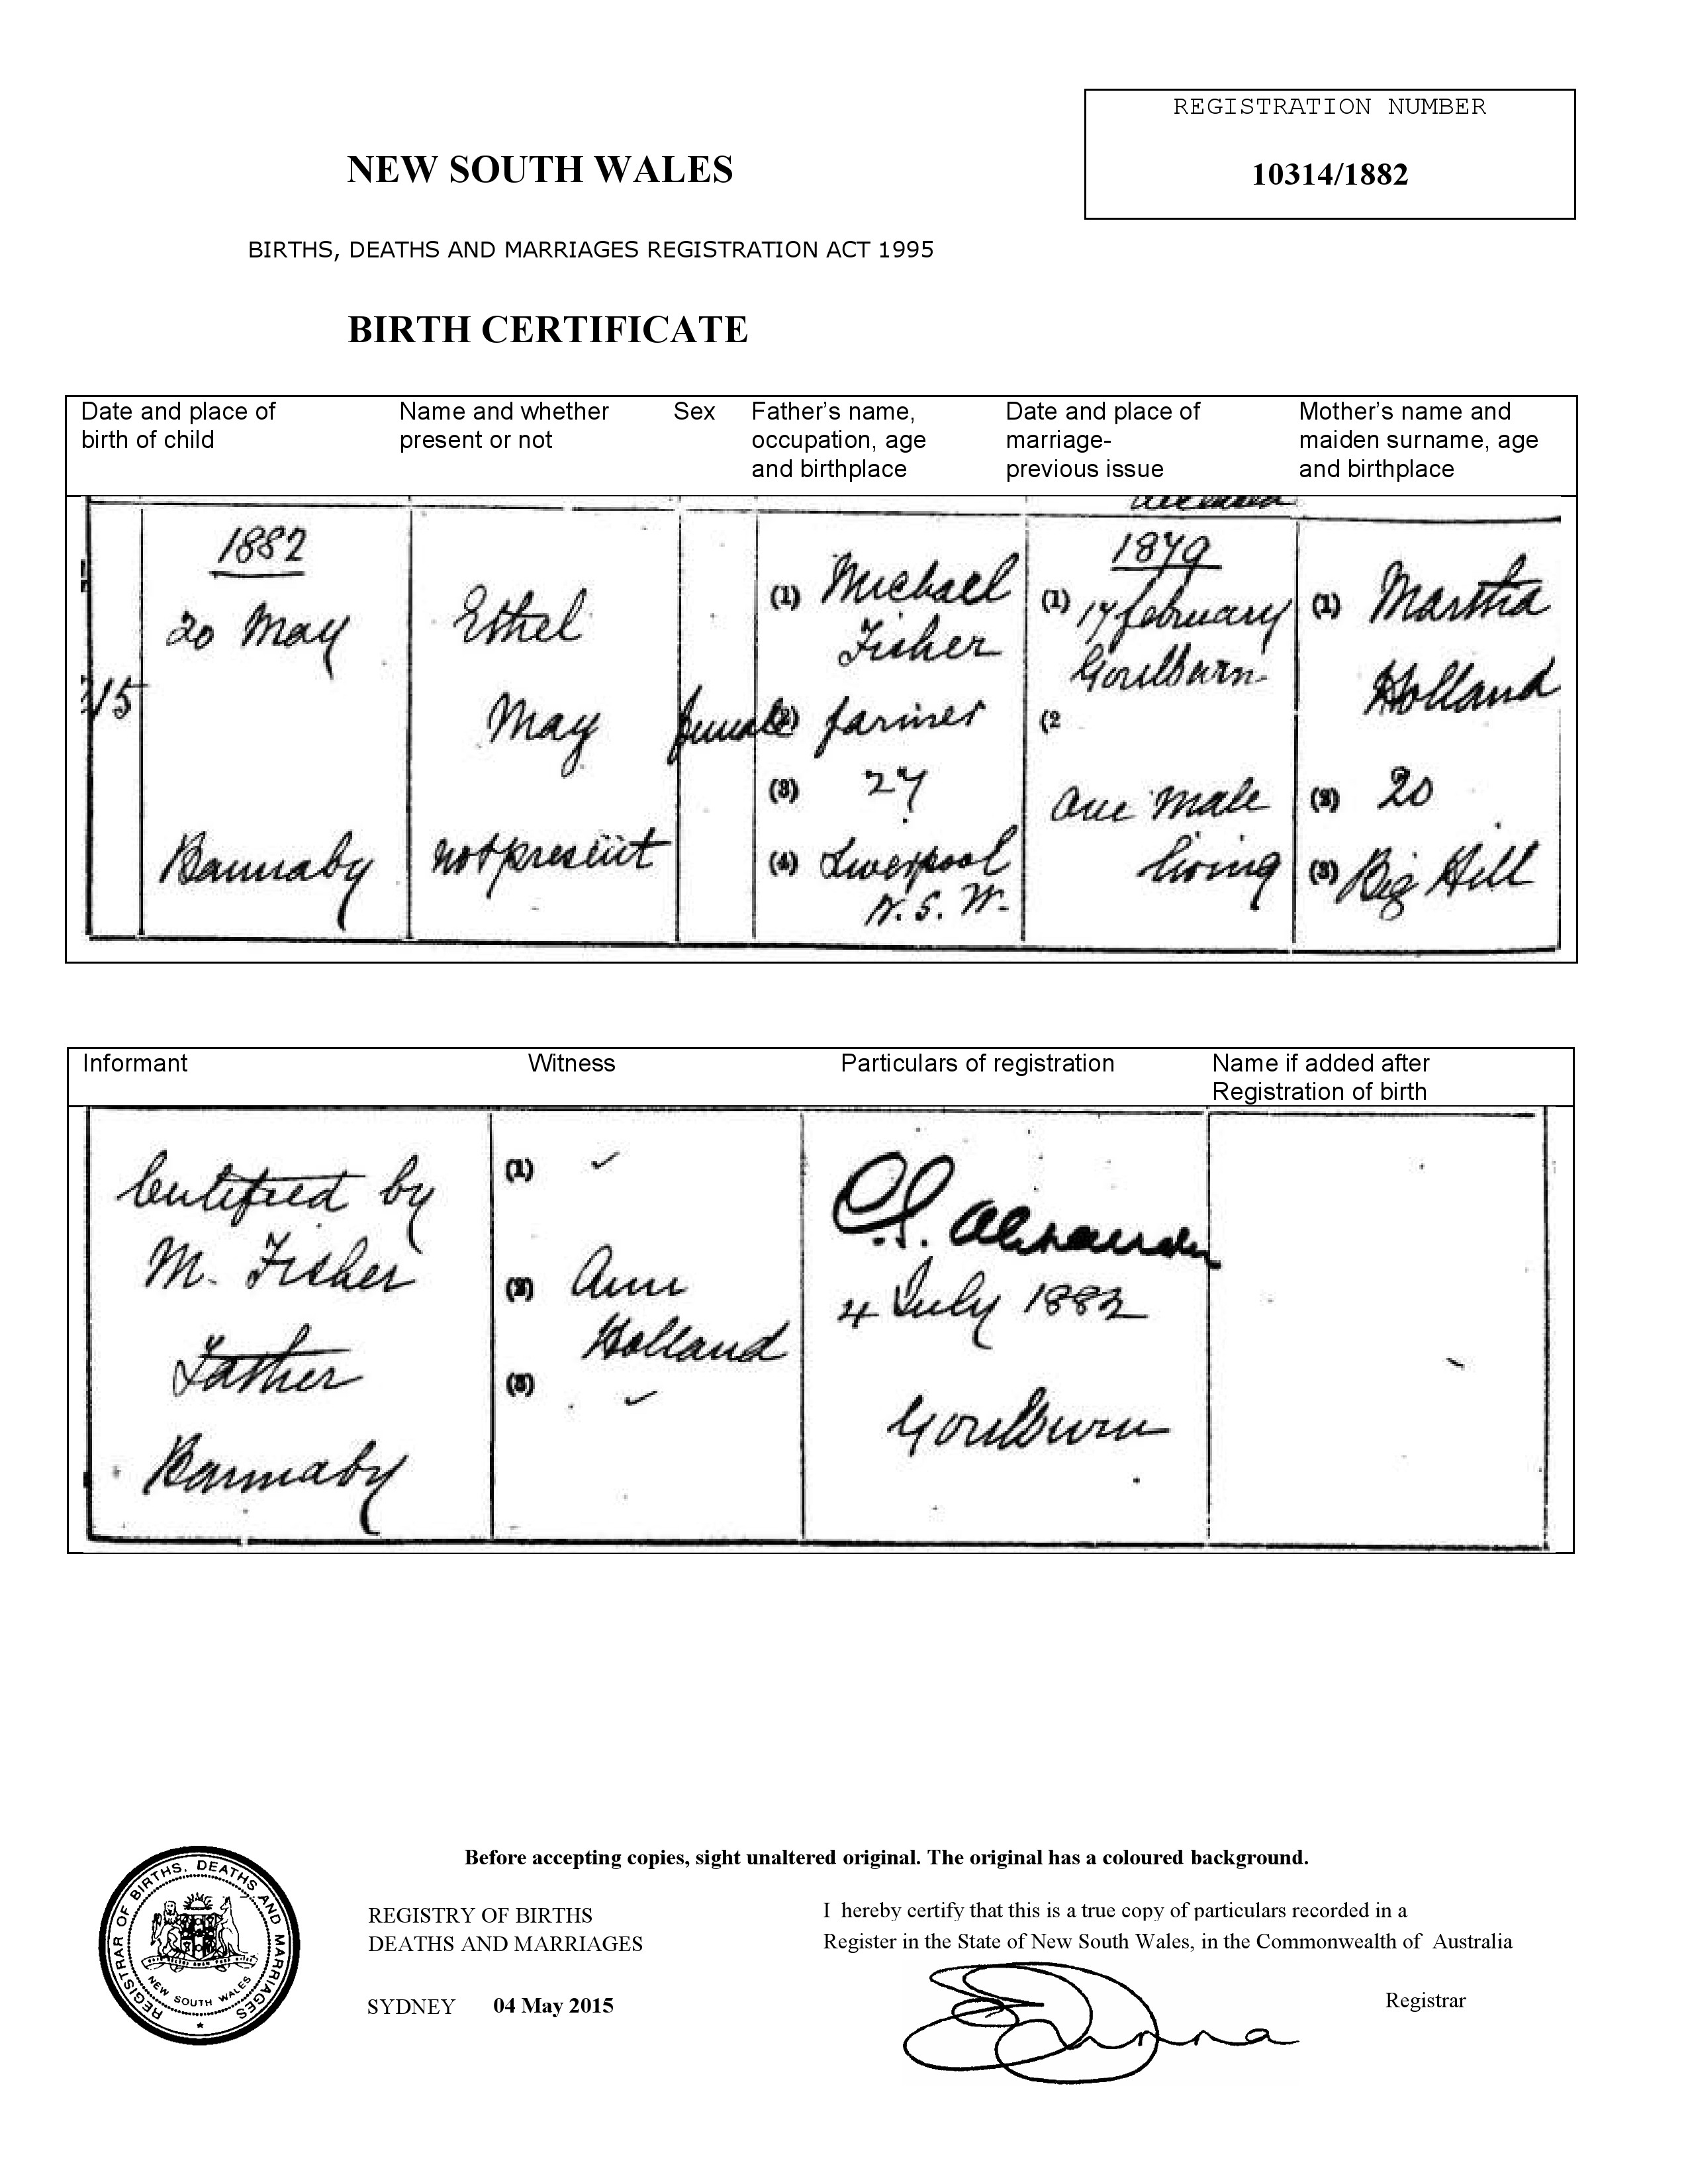 REGISTRATION NUMBER
10314/1882
NEW SOUTH WALES
BIRTHS, DEATHS AND MARRIAGES REGISTRATION ACT 1995
BIRTH CERTIFICATE
Date and place of
birth of child
Name and whether
present or not
Sex
Father's name,
occupation, age
and birthplace
Date and place of
marriage-
previous issue
Mother's name and
maiden surname, age
and birthplace
15
1882
20 May
Bannaby
Ethel
May
not present
female
(1) Michael
Fisher
(2) farmer
(3) 27
(4) Liverpool
N. S. W.
1879
(1) 17 february
Goulburn
(2
One male
living
(1) Martha
Holland
(2) 20
(3) Big Hill
Informant
Witness
Particulars of registration
Name if added after
Registration of birth
Certified by
M. Fisher
Father
Bannaby
(1) ✓
(2) Ann
Holland
(3) ✓
Alexander
4 July 1882
Goulburn
Before accepting copies, sight unaltered original. The original has a coloured background.
REGISTRAR OF BIRTHS, DEATHS AND MARRIAGES
NEW SOUTH WALES
REGISTRY OF BIRTHS
DEATHS AND MARRIAGES
SYDNEY 04 May 2015
I hereby certify that this is a true copy of particulars recorded in a
Register in the State of New South Wales, in the Commonwealth of Australia
Registrar